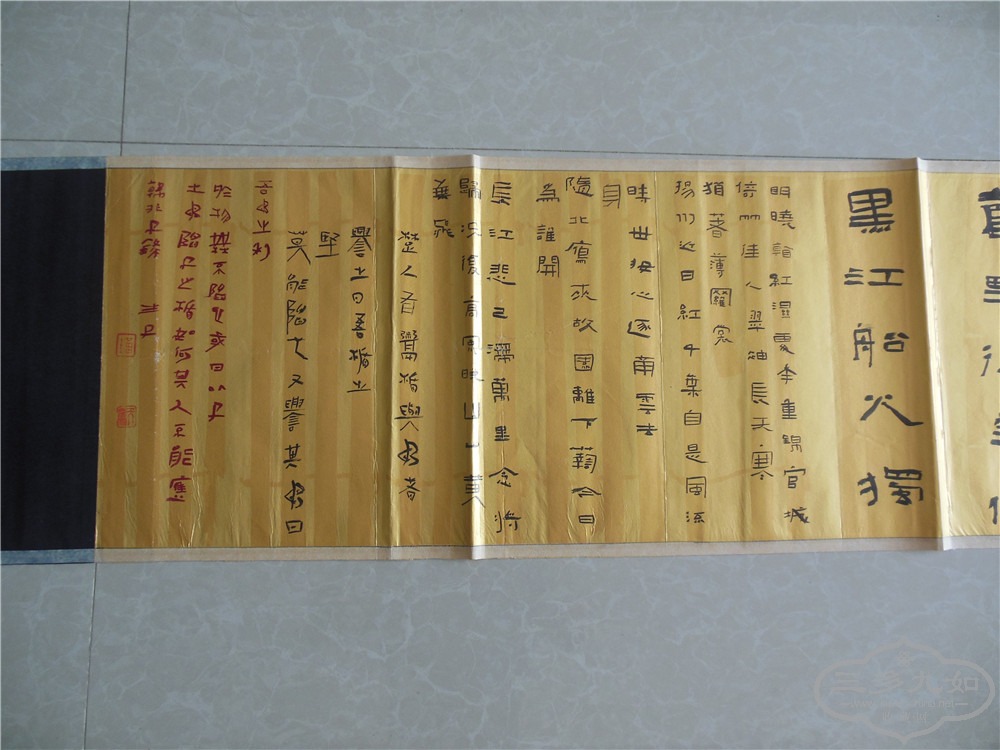 黑江船火獨
明曉看紅濕處花重錦官城
倚竹佳人翠袖長天寒
猶著薄羅裳
揚州近日紅千葉自是風流
時世妝心逐南雲去
身
隨北鴈來故園籬下菊今日
為誰開
長江悲已滯萬里念將
歸況復高風晚山山黃
葉飛
楚人有鬻楯與矛者
譽之曰吾楯之
堅
莫能陷也又譽其矛曰
吾矛之利
於物無不陷也或曰以子
之矛陷子之楯如何其人不能應
韓非子
三多九如